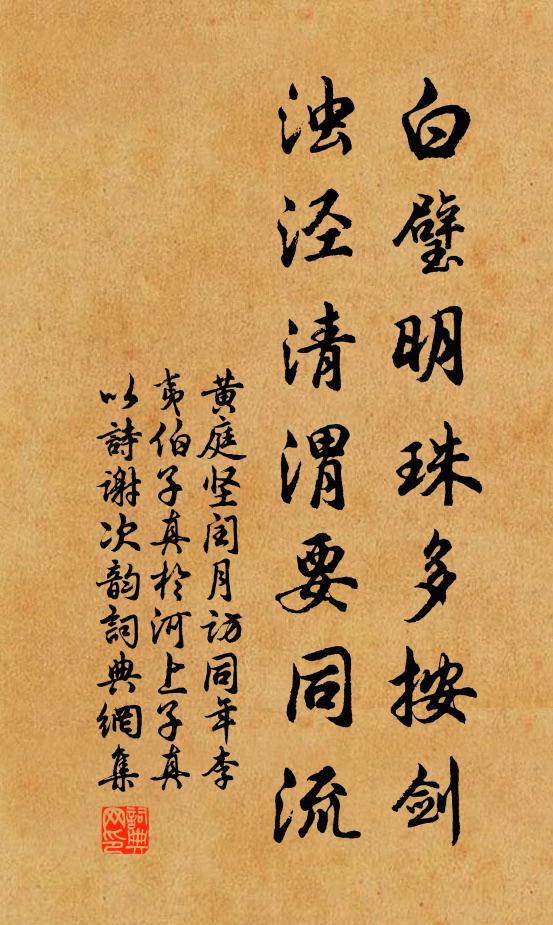 白璧明珠多按剑
浊泾清渭要同流
黄庭坚闰月访同年李
夷伯子真於河上子真
以詩谢次韵詞典網集
詞典网印